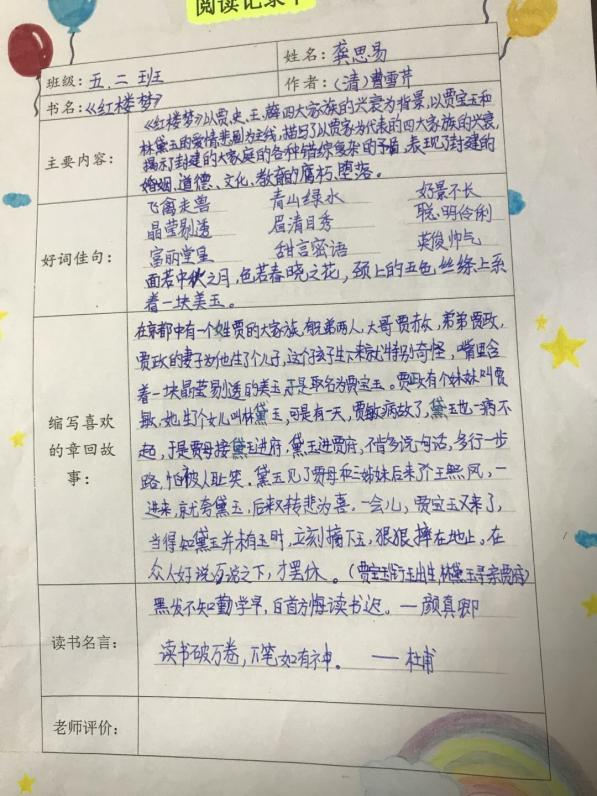 阅读记录卡
班级：五.二班
姓名：龚思易
书名：《红楼梦》
作者：（清）曹雪芹
主要内容：
《红楼梦》以贾、史、王、薛四大家族的兴衰为背景，以贾宝玉和
林黛玉的爱情悲剧为主线，描写了以贾家为代表的四大家族的兴衰，
揭示了封建的大家庭的各种错综复杂的矛盾，表现了封建的
婚姻、道德、文化、教育的腐朽、堕落。
好词佳句：
飞禽走兽 青山绿水 好景不长
晶莹剔透 眉清目秀 聪明伶俐
富丽堂皇 甜言密语 英俊帅气
面若中秋之月，色若春晓之花，颈上的五色丝绦上系
着一块美玉。
缩写喜欢
的章回故
事：
在京都中有一个姓贾的大家族，有兄弟两人，大哥贾赦，弟弟贾政，
贾政的妻子为他生了个儿子，这个孩子生下来就特别奇怪，嘴里含
着一块晶莹易透的美玉，于是取名为贾宝玉。贾政有个妹妹叫贾
敏，她生个女儿叫林黛玉，可是有一天，贾敏病故了，黛玉也一病不
起，于是贾母接黛玉进府，黛玉进贾府，不肯多说一句话，多行一步
路，怕被人耻笑。黛玉见了贾母和三姊妹后来了个王熙凤，一
进来，就夸黛玉，后来又转悲为喜。一会儿，贾宝玉又来了，
当得知黛玉并未有玉时，立刻摘下玉，狠狠摔在地上。在
众人好说歹说之下，才罢休。（贾宝玉衔玉出生，林黛玉寻亲贾府）
读书名言：
黑发不知勤学早，白首方悔读书迟。—颜真卿
读书破万卷，下笔如有神。——杜甫
老师评价：